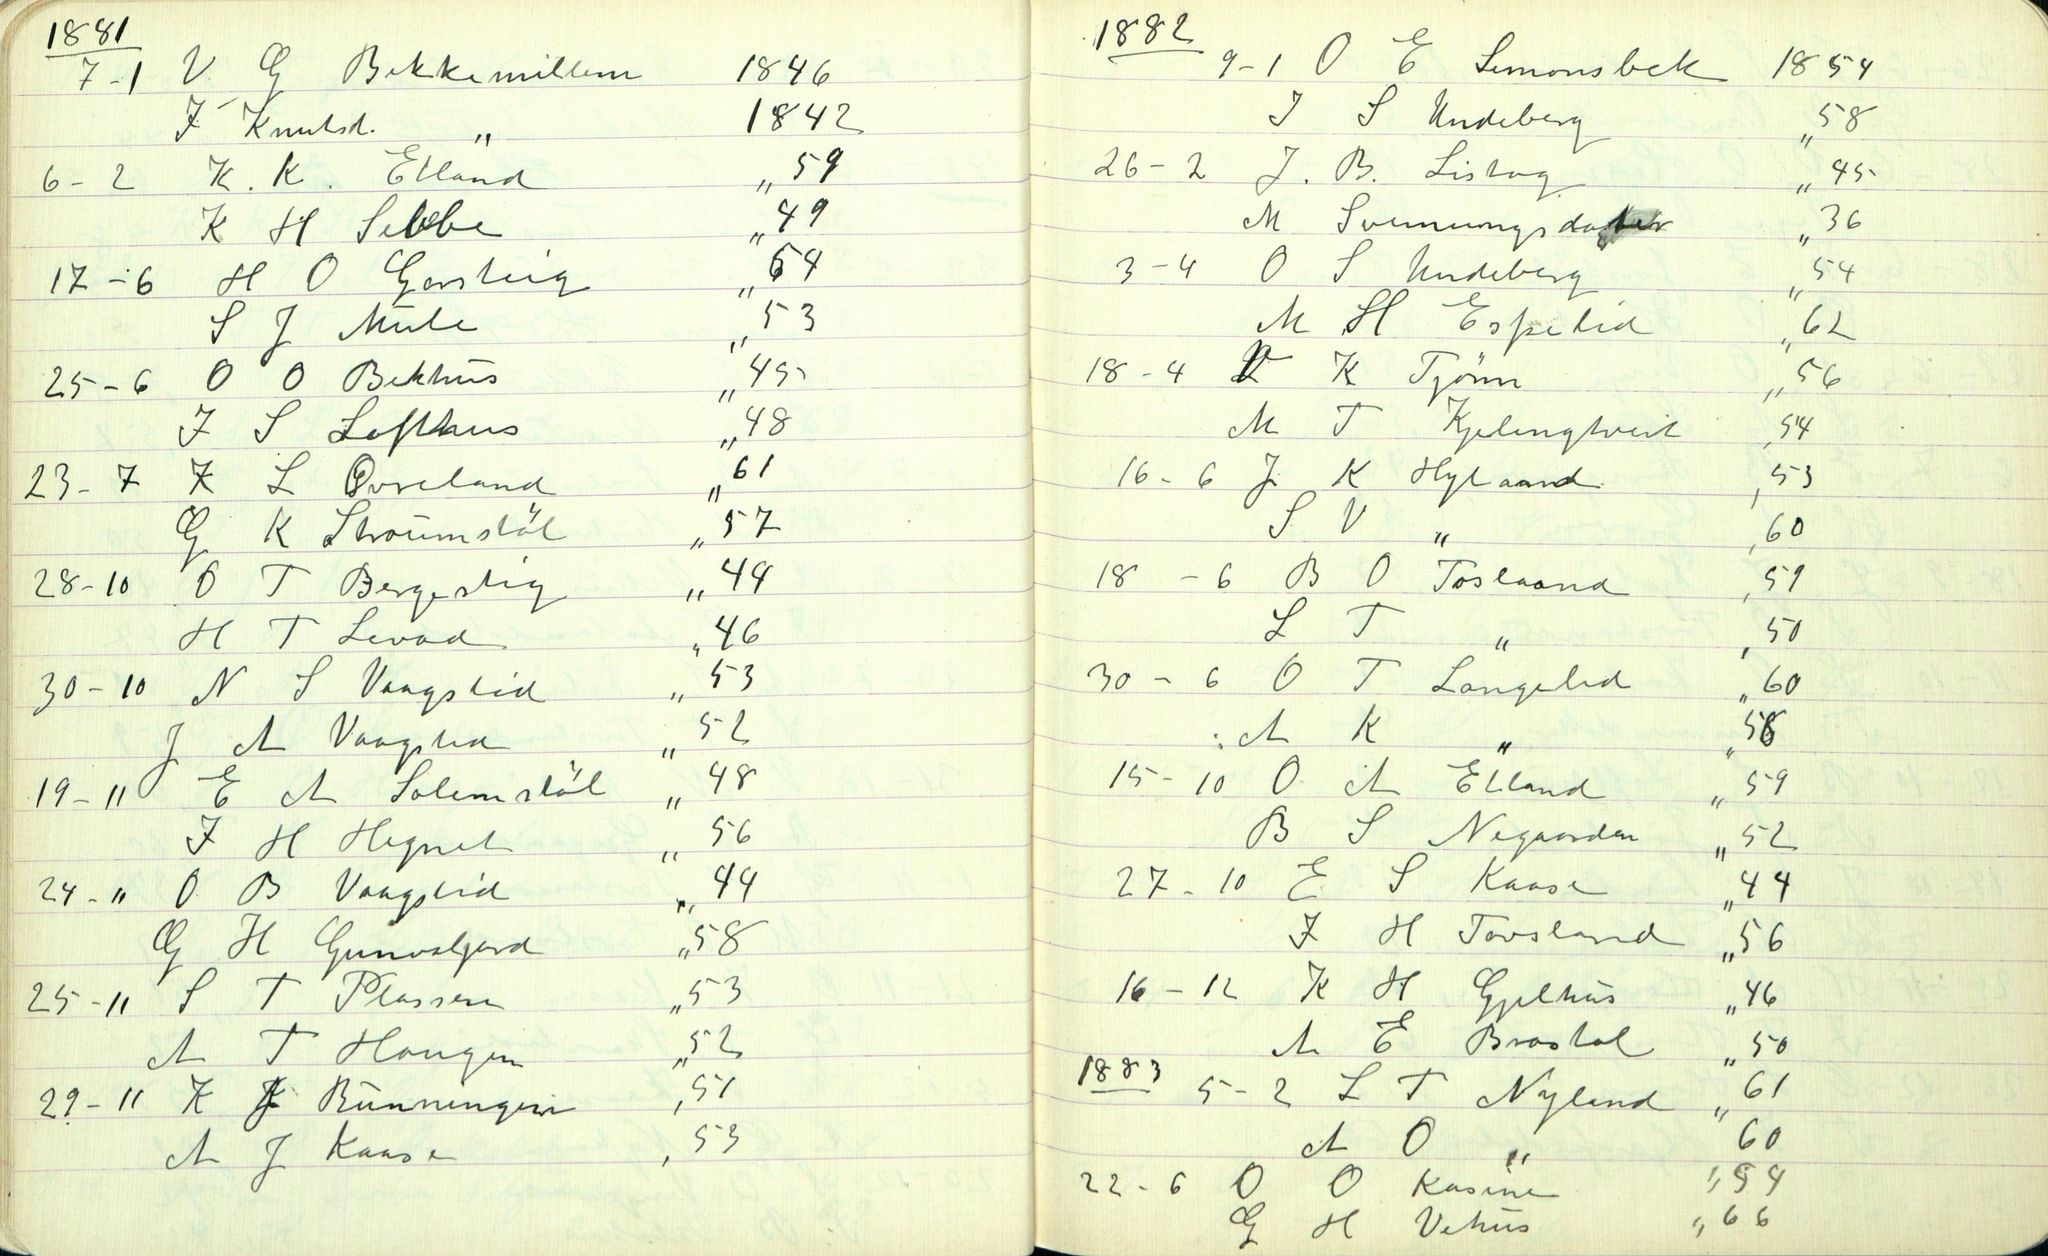 1881
7-1 V. G Bekkemillem 1846
J Knutsd. " 1842
6-2 K. K. Etland " 59
K H Sebbe " 49
17-6 H O Gjersteig " 54
S J Mule " 53
25-6 O O Bekhus " 45
J S Lofthus " 48
23-7 K L Overeland " 61
G K Straumstöl " 57
28-10 O T Bergestig " 44
H T Levad " 46
30-10 N S Vaagslid " 53
J A Vaagslid " 52
19-11 E A Solemstöl " 48
J H Hegnet " 56
24-" O B Vaagslid " 44
G H Gunvalfjord " 58
25-11 S T Plassen " 53
A T Haugen " 52
29-11 K K Bunningen , 51
A J Kaase , 53
1882
9-1 O E Simonsbek 1854
I S Undeberg " 58
26-2 J. B. Listog " 45
M Sveinungsdatter " 36
3-4 O S Undeberg " 54
M H Espelid " 62
18-4 K Tjönn " 56
M T Kjelingtveit , 54
16-6 J K Hylaand , 53
S V " , 60
18-6 B O Toslaand , 59
L T " , 50
30-6 O T Langelid " 60
A K " " 58
15-10 O A Etland " 59
B S Negaarden " 52
27-10 E S Kaase " 44
J H Tovsland " 56
16-12 K H Gjelhus " 46
A E Brastöl " 50
1883 5-2 L T Nyland " 61
A O " 60
22-6 O O Kasine " 54
G H Vehus " 66